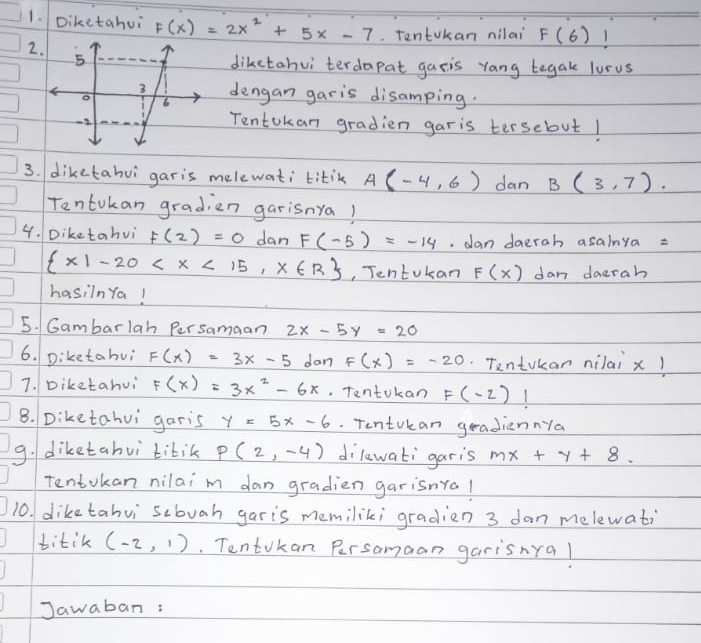 1. Diketahui F(x) = 2x² + 5x - 7. Tentukan nilai F(6) !
2. diketahui terdapat garis yang tegak lurus
dengan garis disamping.
Tentukan gradien garis tersebut !
5
0
3
6
-2
3. diketahui garis melewati titik A (-4,6) dan B (3,7).
Tentukan gradien garisnya !
4. Diketahui F(2) = 0 dan F(-5) = -14. dan daerah asalnya =
{x|-20 < x < 15, x ∈ R}, Tentukan F(x) dan daerah
hasilnya !
5. Gambarlah Persamaan 2x - 5y = 20
6. Diketahui F(x) = 3x - 5 dan F(x) = -20. Tentukan nilai x !
7. Diketahui F(x) = 3x² - 6x. Tentukan F(-2) !
8. Diketahui garis y = 5x - 6. Tentukan gradiennya
9. diketahui titik P(2,-4) dilewati garis mx + y + 8.
Tentukan nilai m dan gradien garisnya !
10. diketahui sebuah garis memiliki gradien 3 dan melewati
titik (-2, 1). Tentukan Persamaan garisnya !
Jawaban :